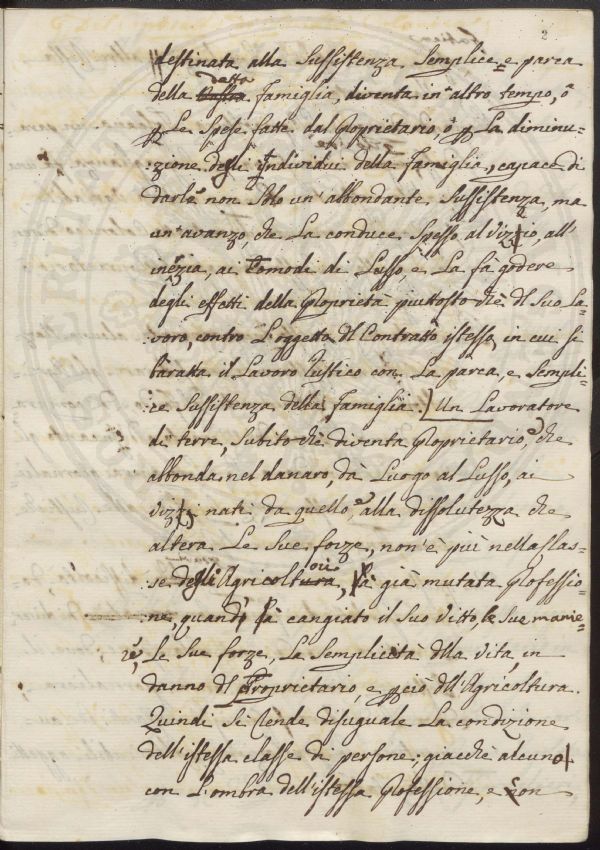 2
destinata alla Sussistenza Semplice, e parca
detta
della Famiglia, diventa in altro tempo, ò
p Le Spese fatte dal Proprietario, ò p La diminu-
:zione degli Individui della Famiglia, capace di
darle non Solo un' abbondante Sussistenza, ma
un' avanzo, che La conduce Spesso al vizio, all'
inezia, ai Comodi di Lusso, e La fà godere
degli effetti della Proprietà piuttosto che dl Suo La-
voro, contro L'oggetto dl Contratto istesso, in cui si
baratta il Lavoro Rustico con La parca, e Sempli-
:ce Sussistenza della Famiglia.) Un Lavoratore
di terre, Subito che diventa Proprietario, e che
abbonda nel danaro, dà Luogo al Lusso, ai
vizj nati da quello, e alla dissolutezza che
altera Le Sue forze, non è più nella clas-
se degli Agricoltori, à già mutata Professio-
ne, quando à cangiato il Suo vitto, le Sue manie-
:re, Le Sue forze, La Semplicità dlla vita, in
danno dl Proprietario, e pciò dll'Agricoltura.
Quindi Si rende disuguale La condizione
dell'istessa classe di persone; giacchè alcuno
con L'ombra dell'istessa Professione, e non